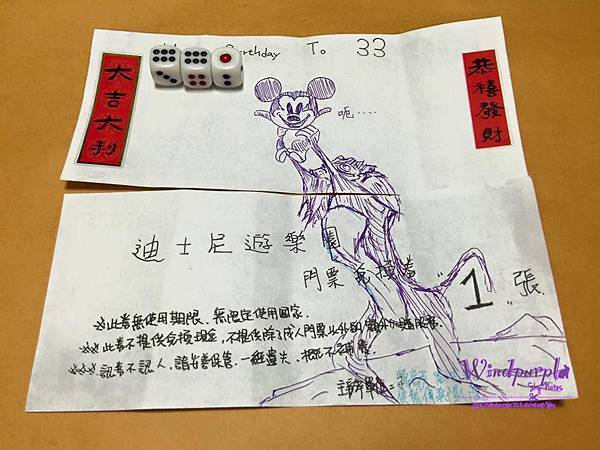 Birthday To 33
大吉大利
恭禧發財
呃....
迪士尼遊樂園
門票兌換券 "1" 張
※此券無使用期限、無限定使用國家.
※※此券不提供兌換現金,不提供除了成人門票以外的
※※※認券不認人,請妥善保管,一經遺失,概不補發
主辦單位=
Windpurple